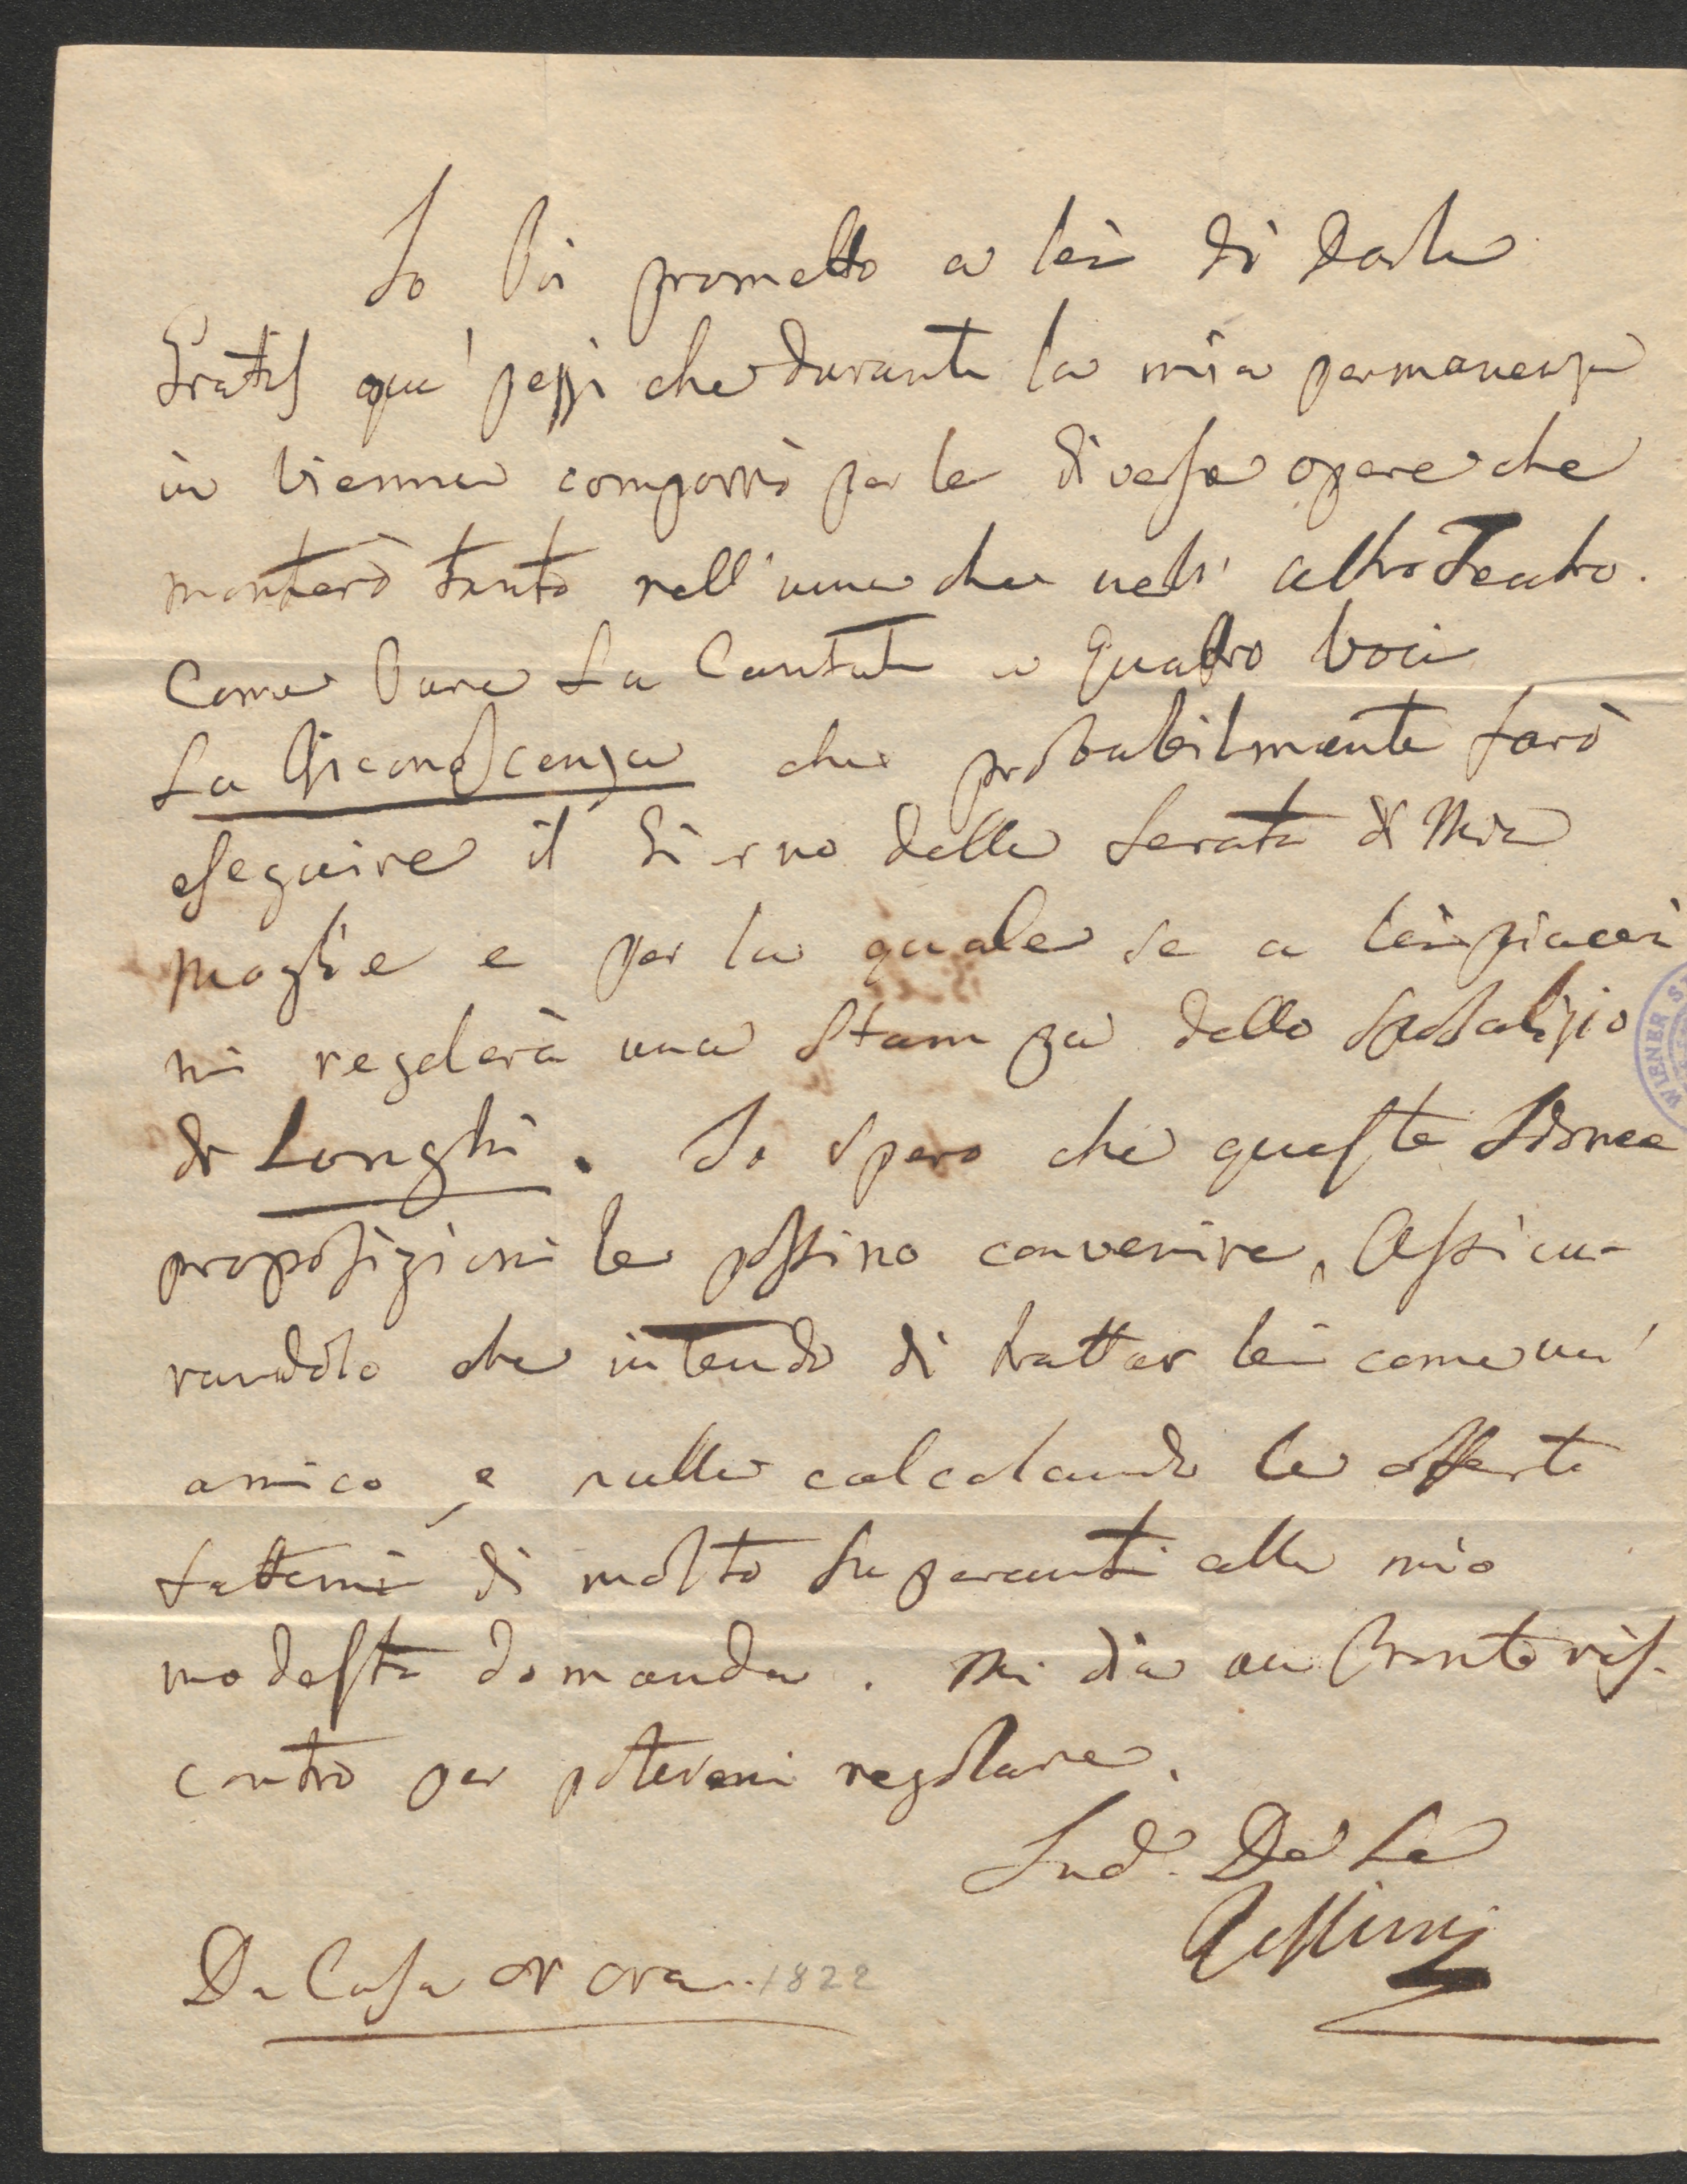 Io Poi prometto a lei di darle
Gratis que' pezzi che durante la mia permanenza
in Vienna comporrò per le diverse opere che
monterò tanto nell'uno che nell' altro Teatro.
Come Pure La Cantata a quattro Voci
La Riconoscenza che probabilmente farò
eseguire il Giorno della Serata di Mia
Moglie e per la quale se a lei piacerà
mi regalerà una Stampa dello Sposalizio
di Longhi. Io Spero che queste Idonee
proposizioni le possino convenire, Assicu-
randolo che intendo di trattar lei come un'
amico, e nulla calcolando le offerte
fattemi di molto Superanti alla mia
modesta domanda. Mi dia un Pronto ris-
contro per potermi regolare.
Sud. De Le
Rossini
Da Casa 1822
WIENER S